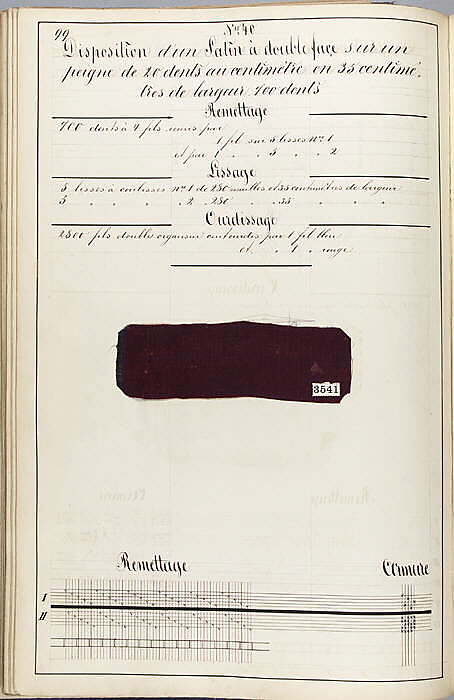 99
N° 40
Disposition d'un Satin à double face sur un
peigne de 20 dents au centimètre en 35 centimè,
tres de largeur 700 dents
Remettage
700 dents à 4 fils unis par
1 fil sur 5 lisses n° 1
et par 1 „ „ 5 „ „ 2
Lissage
5 lisses à coulisses n° 1 de 280 mailles et 35 centimètres de largeur
5 „ „ „ 2 „ 280 „ 35 „ „ „
Ourdissage
2800 fils double organsin ourdis par 1 fil bleu
et „ 1 „ rouge
3541
Remettage
Armure
I
II